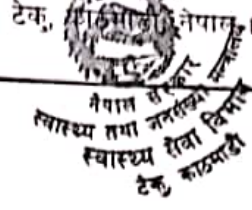 टेकु, काठमाडौं, नेपाल
नेपाल सरकार
स्वास्थ्य तथा जनसंख्या
स्वास्थ्य सेवा विभाग
टेकु, काठमाडौं